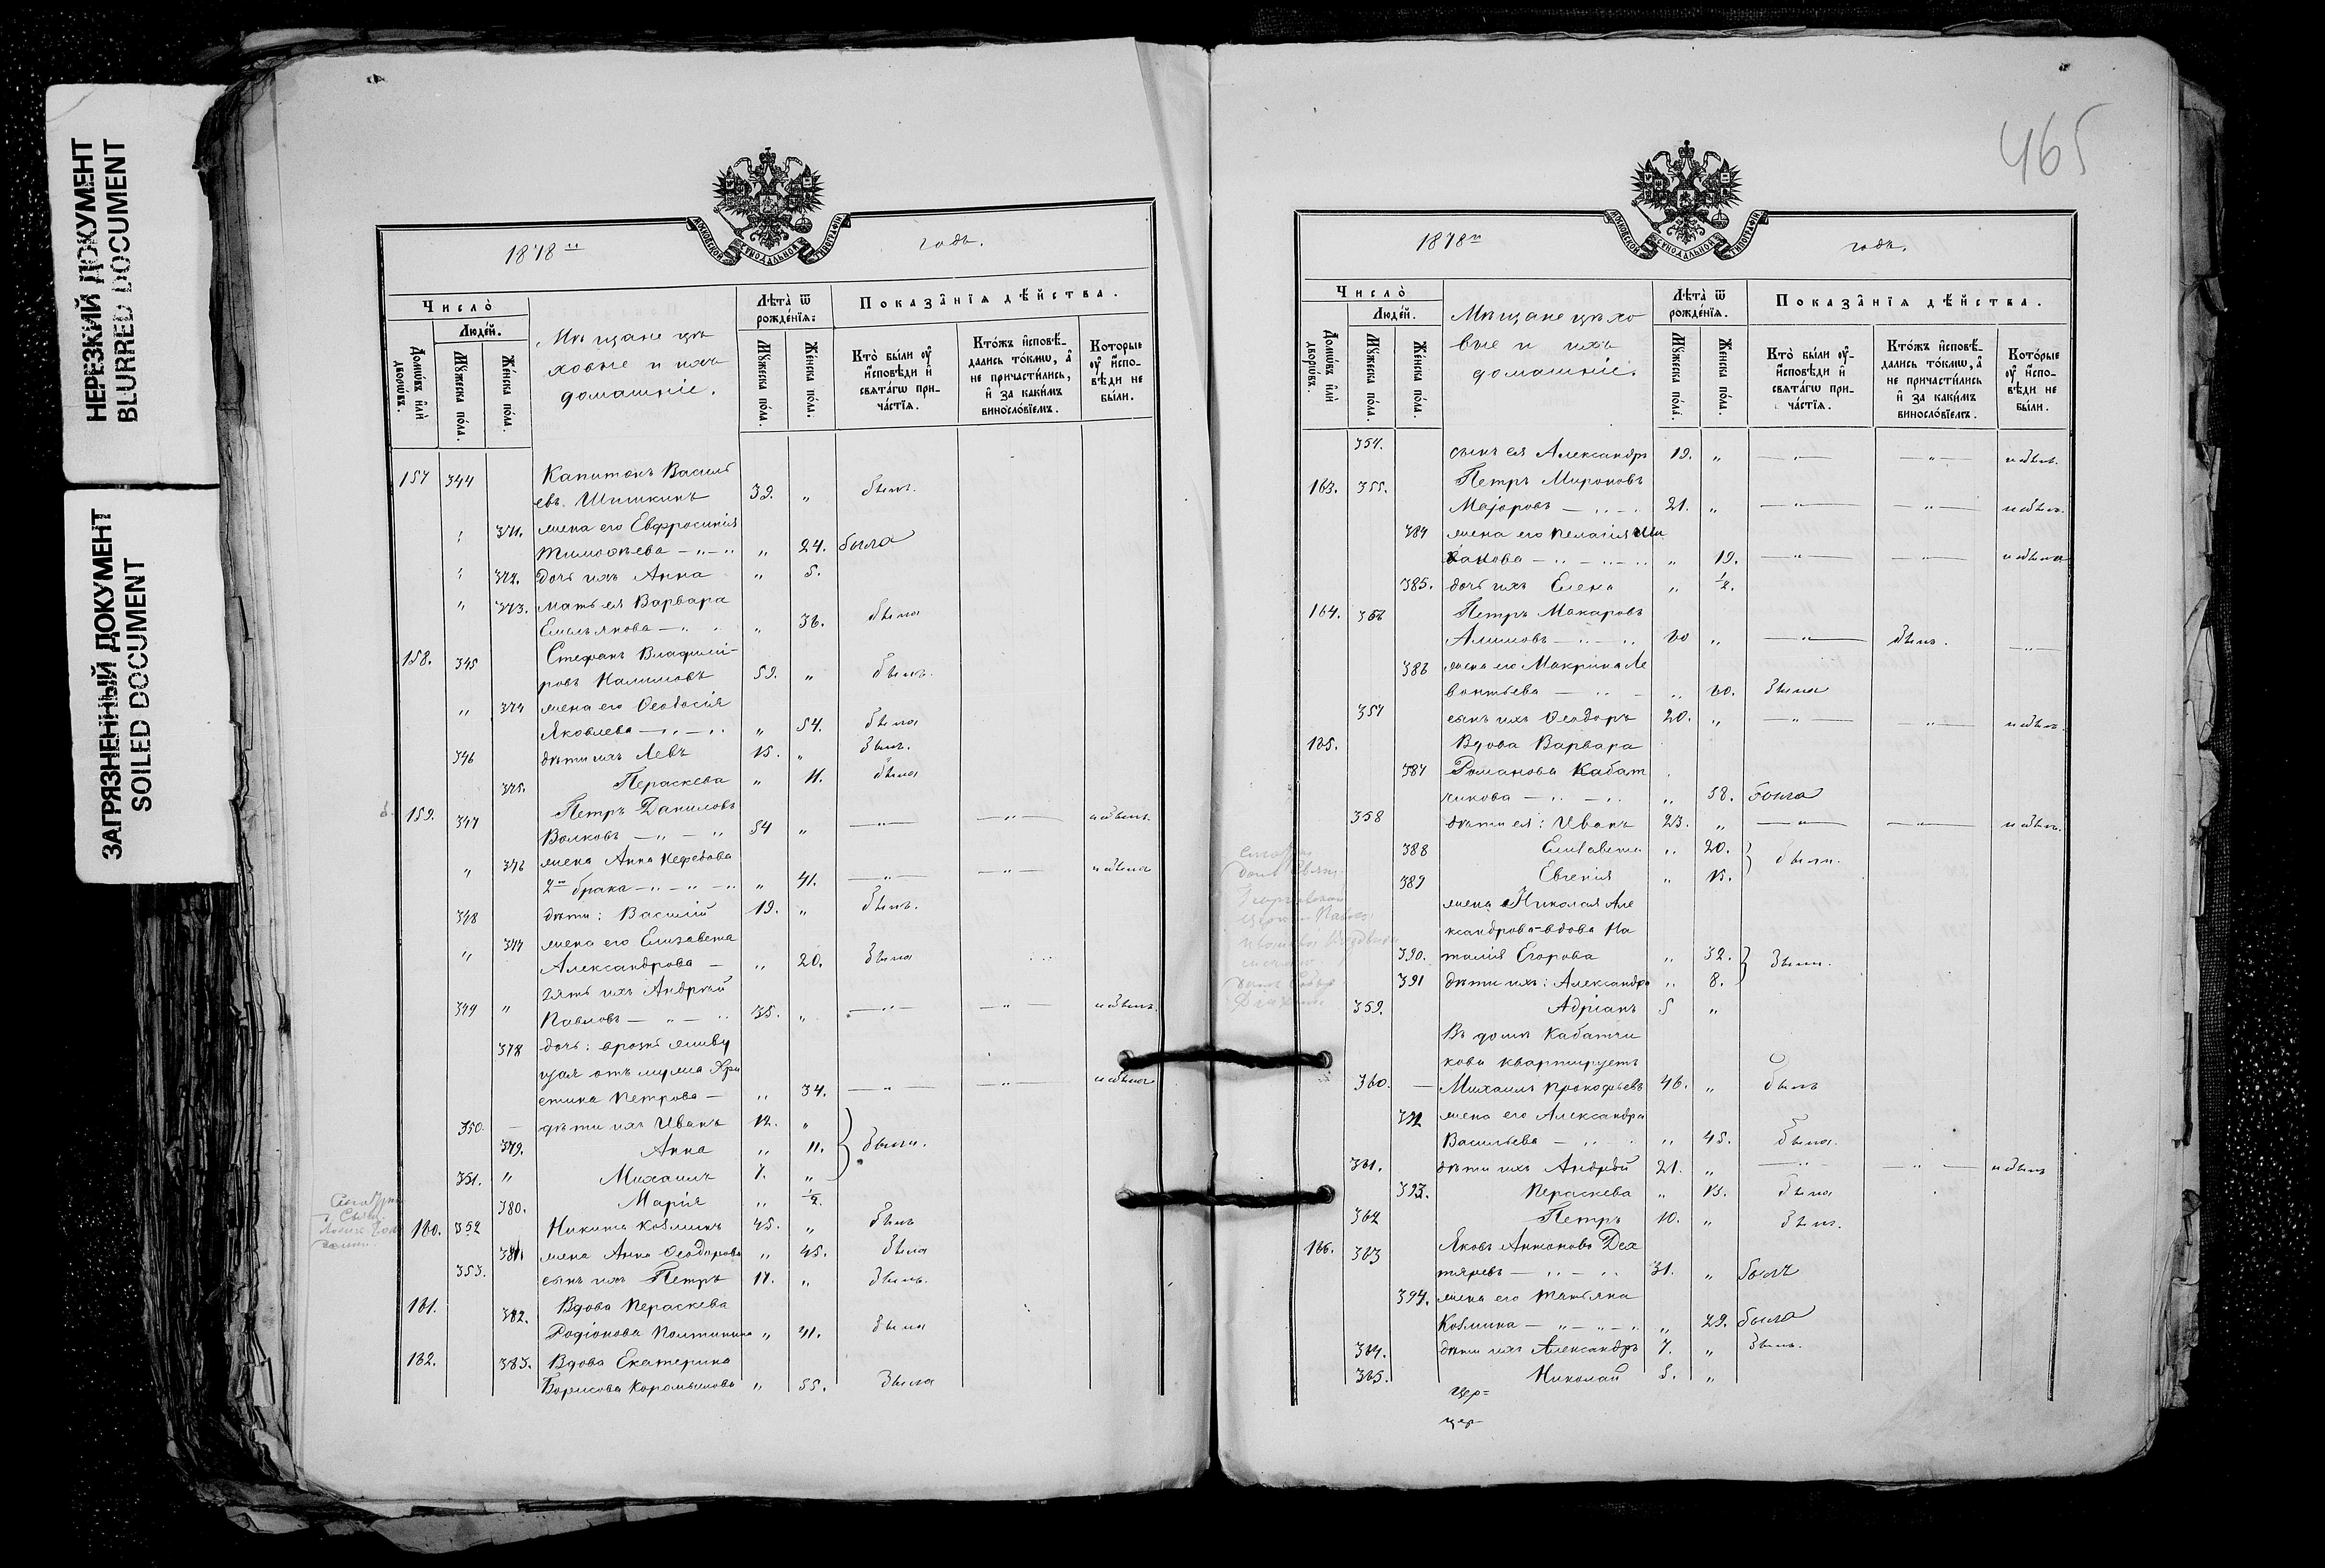 НЕРЕЗКИЙ ДОКУМЕНТ
BLURRED DOCUMENT
ЗАГРЯЗНЕННЫЙ ДОКУМЕНТ
SOILED DOCUMENT
1878 годъ.
Число̀
Людей.
Домѡвъ и҆лѝ дворѡвъ.
Мꙋжеска по́ла.
Же́нска по́ла.
Мѣщане це
ховые и ихъ
домашніе.
Лѣта̀ ѿ рожде́нїѧ:
Мꙋжеска по́ла.
Же́нска по́ла.
Показа̑нїѧ дѣ́йства.
Кто̀ бы́ли ᲂу҆ и҆сповѣ́ди и҆ свѧта́гѡ прича́стїѧ.
Кто́жъ и҆сповѣ́дались то́кмѡ, а҆ не причасти́лись, и҆ за каки́мъ винословїемъ.
Которые ᲂу҆ и҆сповѣ́ди не бы́ли.
157 344 Капитонъ Василь
евъ Шишкинъ 39. „ былъ.
371. жена его Евфросинія
Тимофѣева „ 24. была
372. дочь ихъ Анна „ 5.
„ 373. мать ея Варвара
Емельянова „ 36. была
158. 345 Стефанъ Владимі-
ровъ Налимовъ 59. „ былъ.
„ 374 жена его Ѳеодосія
Яковлева „ 54. была
346 дѣти ихъ Левъ 15. „ былъ.
375. Пераскева „ 11. была
159. 347 Петръ Даниловъ
Волковъ 54 „ — „ — — „ — небылъ.
„ 376 жена Анна Нефедова
2го брака „ 41. — „ — — „ — небыла
348 дѣти: Василій 19. „ былъ.
„ 377 жена его Елизавета
Александрова — „ 20. была
зять ихъ Андрей
349 „ Павловъ 35. „ — „ — — „ — небылъ.
378 дочь: врознь живу
щая отъ мужа Хри
стина Петрова — „ 34. — „ — — „ — небыла
350. — дѣти ихъ Иванъ 12. „
379. Анна „ 11. были.
351. „ Михаилъ 7. „
380. Марія „ ½.
160. 352 Никита Козминъ 45. „ былъ
381 жена Анна Ѳеодорова „ 45. была
353. сынъ ихъ Петръ 17. „ былъ.
161. 382. Вдова Пераскева
Родіонова „ 41. была
162. 383. Вдова Екатерина
Борисова Коромыслова „ 55. была
465
1878 годъ.
Число̀
Людей.
Домѡвъ и҆лѝ дворѡвъ.
Мꙋжеска по́ла.
Же́нска по́ла.
Мѣщане цехо
вые и ихъ
домашніе.
Лѣта̀ ѿ рожде́нїѧ.
Мꙋжеска по́ла.
Же́нска по́ла.
Показа̑нїѧ дѣ́йства.
Кто̀ бы́ли ᲂу҆ и҆сповѣ́ди и҆ свѧта́гѡ прича́стїѧ.
Кто́жъ и҆сповѣ́дались то́кмѡ, а҆ не причасти́лись и҆ за каки́мъ винословїемъ.
Кото́рые ᲂу҆ и҆сповѣ́ди не бы́ли.
354. сынъ ея Александръ 19. „ — „ — — „ — небылъ.
163. 355. Петръ Мироновъ
Маіоровъ 21. „ — „ — — „ — небылъ.
384 жена его Пелагія
„ 19. — „ — — „ — небыла
385. дочь ихъ Елена „ ½.
164. 356 Петръ Макаровъ
Алимовъ 60 „ — „ — былъ.
386 жена его Макрина Ле
вонтьева „ 60. была
357 сынъ ихъ Ѳеодоръ 20. „ — „ — — „ — небылъ.
165. Вдова Варвара
387 Романова Кабат
чикова „ 58. была
358 дѣти ея: Иванъ 23. „ — „ — — „ — небылъ.
388 Елизавета „ 20. были.
389 Евгенія „ 15.
жена Николая Але
ксандрова-вдова На
390. талія Егорова „ 32. были.
391 дѣти ихъ: Александра „ 8.
359. Адріанъ 5 „
Въ домѣ Кабатчи
кова квартируетъ
360. — Михаилъ Прокофьевъ 46. „ былъ
392 жена его Александра
Васильева „ 45. была.
361. дѣти ихъ Андрей 21. „ — „ — — „ — небылъ
393. Пераскева „ 13. была
362 Петръ 10. „ былъ.
166. 363 Яковъ Антоновъ Дех
тяревъ 31. „ былъ
394. жена его Татьяна
Козмина „ 29. была
364. дѣти ихъ Александръ 7. „ былъ.
365. Николай 5. „
Цер=
цер-